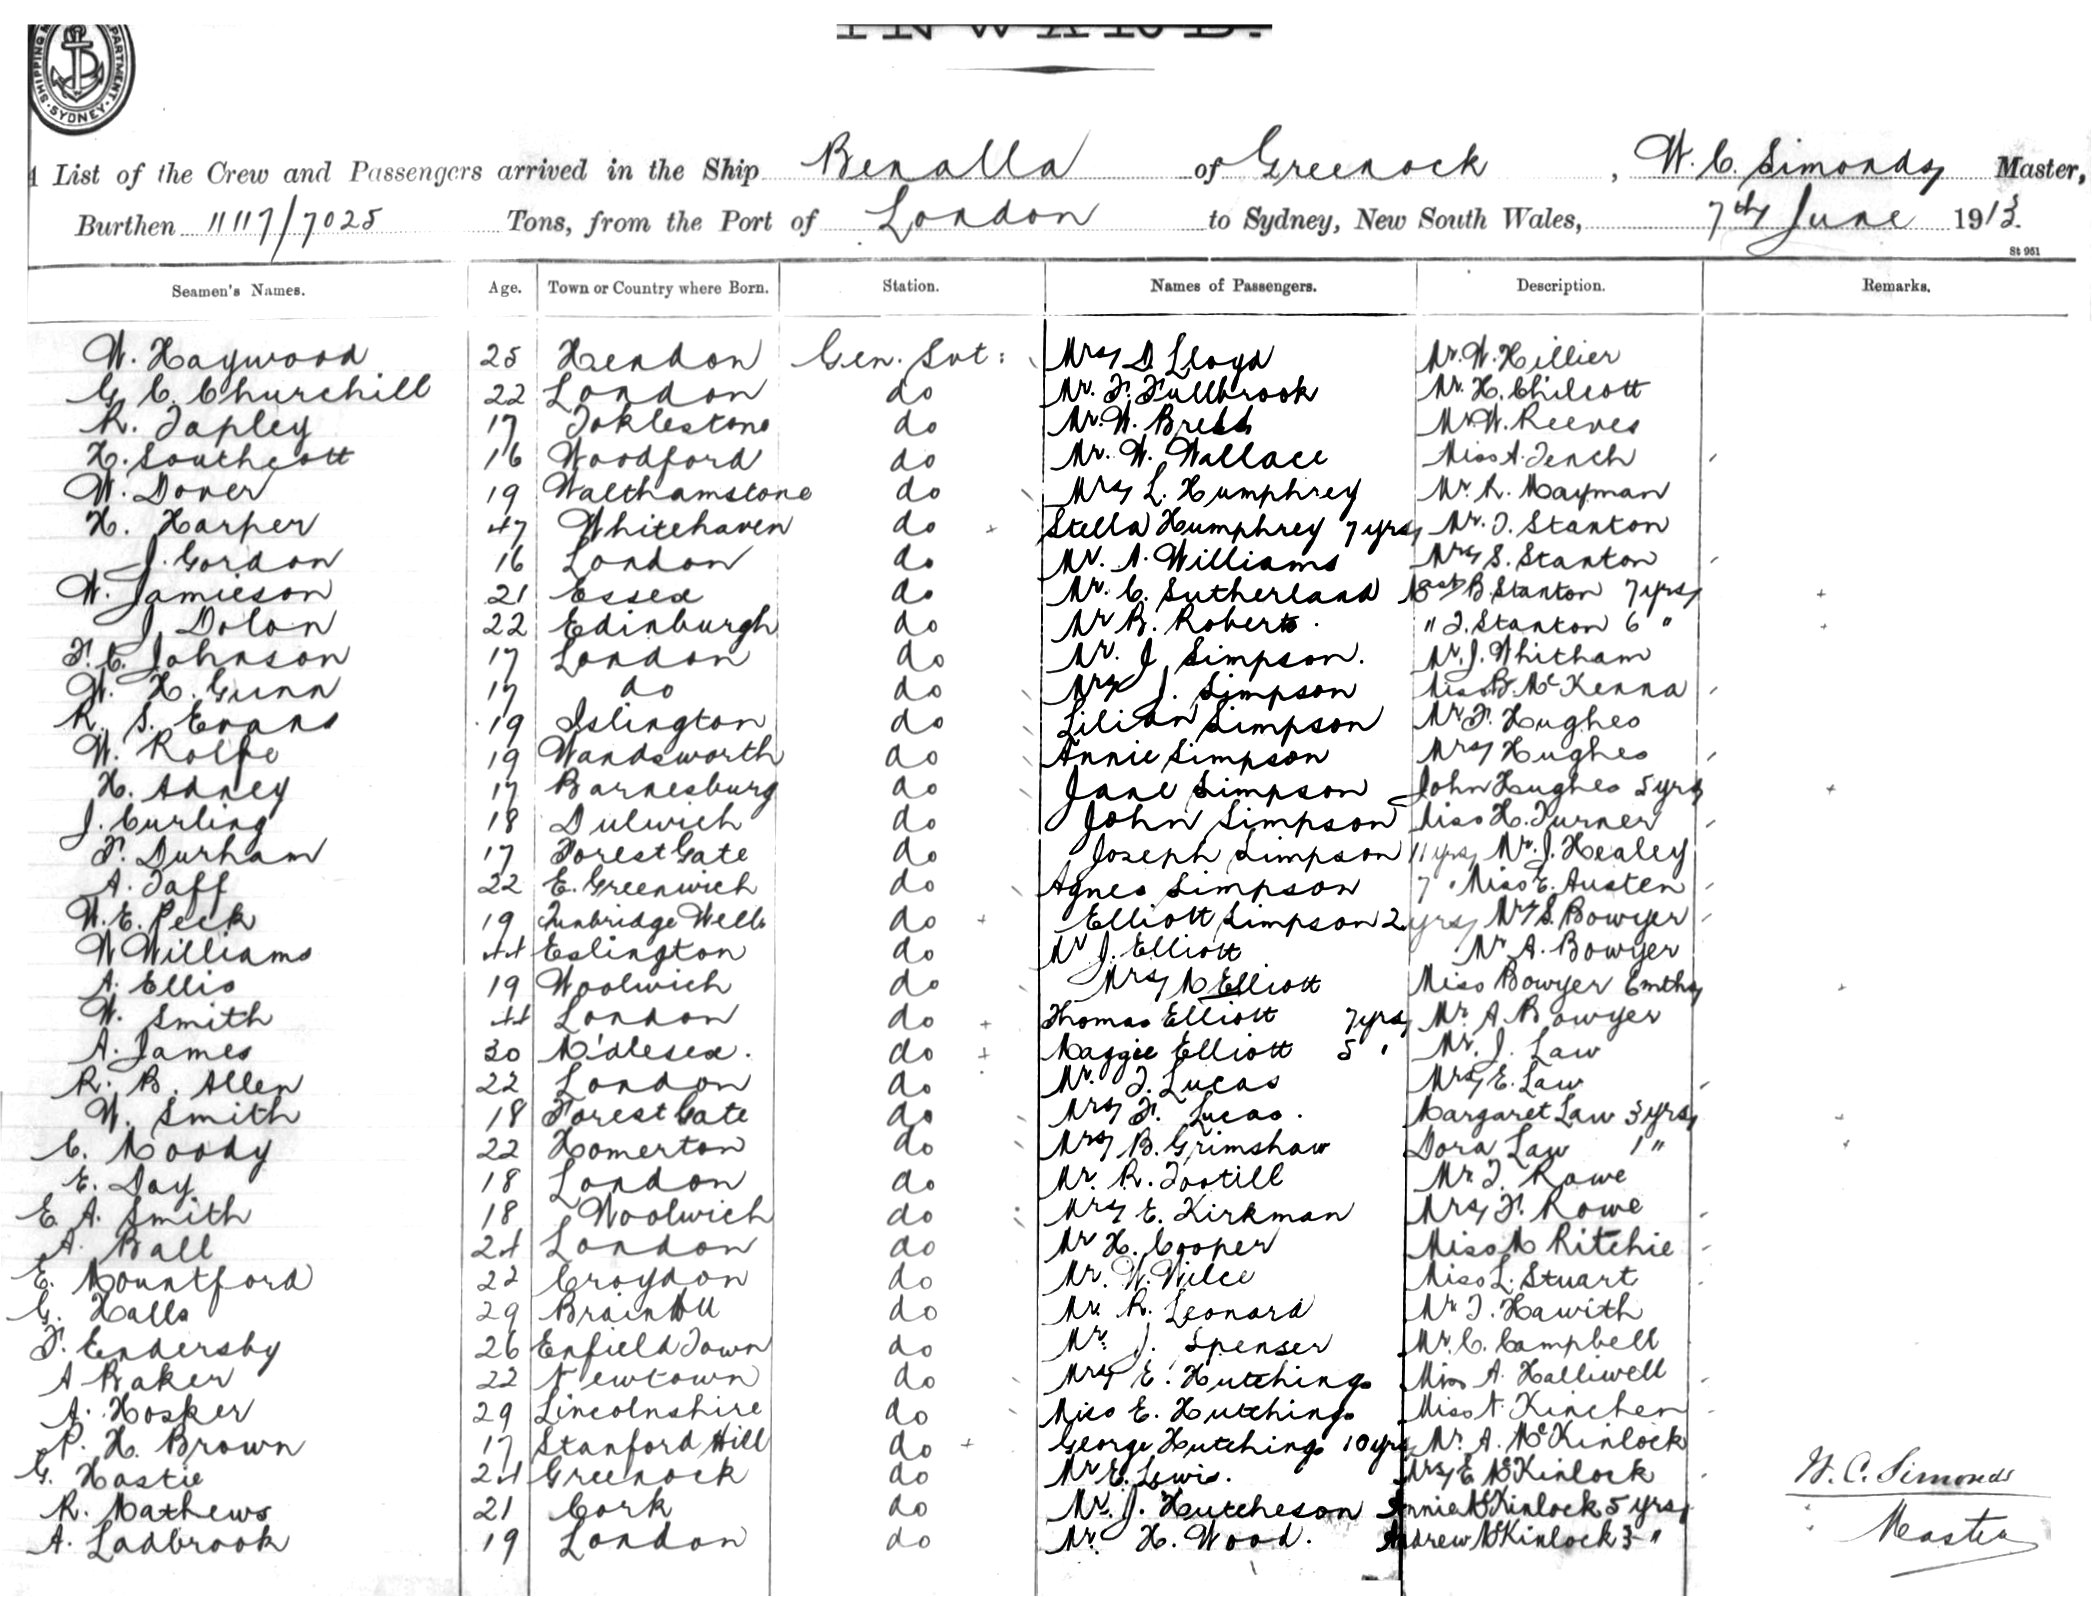 INWARD.
SHIPPING DEPARTMENT SYDNEY
List of the Crew and Passengers arrived in the Ship Benalla of Greenock, W. C. Simonds Master,
Burthen 11117/7025 Tons, from the Port of London to Sydney, New South Wales, 7th June 1913.
St 951
Seamen's Names. Age. Town or Country where Born. Station. Names of Passengers. Description. Remarks.
W. Haywood 25 Hendon Gen. Svt: Mrs D Lloyd Mr. W. Hillier
G. C. Churchill 22 London do Mr. F. Fullbrook Mr. H. Chilcott
R. Tapley 17 do Mr. W. Mr W. Reeves
H. Southcott 16 Woodford do Mr. W. Wallace Miss A. Tench
W. Dover 19 Walthamstone do Mrs L. Humphrey Mr. R. Mayman
H. Harper 47 Whitehaven do Stella Humphrey 7 yrs Mr. T. Stanton
J. Gordon 16 London do Mr. A. Williams Mrs S. Stanton
W. Jamieson 21 Essex do Mr. C. Sutherland Mast B. Stanton 7 yrs
J. Dolon 22 Edinburgh do Mr B. Roberts. " T. Stanton 6 "
F. C. Johnson 17 London do Mr. J. Simpson. Mr. J. Whitham
W. H. Gunn 17 do do Mrs J. Simpson Miss B. McKenna
R. S. Evans 19 Islington do Lilian Simpson Mr F. Hughes
W. Rolfe 19 Wandsworth do Annie Simpson Mrs Hughes
H. Adney 17 Barnesburg do Jane Simpson John Hughes 5 yrs
J. Curling 18 Dulwich do John Simpson Miss H. Turner
F. Durham 17 Forest Gate do Joseph Simpson 11 yrs Mr. J. Healey
A. Taff 22 E. Greenwich do Agnes Simpson 7 " Miss E. Austen
W. E. Peck 19 Tunbridge Wells do Elliott Simpson 2 yrs Mrs S. Bowyer
W Williams 44 Eslington do Mr J. Elliott Mr A. Bowyer
A. Ellis 19 Woolwich do Mrs M Elliott Miss Bowyer 6 mths
W. Smith 44 London do Thomas Elliott 7 yrs Mr. A. Bowyer
A. James 30 Midlesex. do Maggie Elliott 5 " Mr. J. Law
R. B. Allen 22 London do Mr. T. Lucas Mrs E. Law
W. Smith 18 Forest Gate do Mrs F. Lucas. Margaret Law 3 yrs
C. Moody 22 Homerton do Mrs B. Grimshaw Dora Law 1 "
E. Day 18 London do Mr. R. Tootill Mr. T. Rowe
E A. Smith 18 Woolwich do Mrs E. Kirkman Mrs F. Rowe
A. Ball 24 London do Mr H. Cooper Miss M Ritchie
E. Mountford 22 Croydon do Mr. W. Wilce Miss L. Stuart
G. Halls 29 do Mr. R. Leonard Mr T. Hawith
F. Endersby 26 Enfield Town do Mr. J. Spenser Mr. C. Campbell
A Baker 22 Newtown do Mrs E. Hutchings Miss A. Halliwell
A. Hosker 29 Lincolnshire do Miss E. Hutchings Miss N. Kinchen
P. H. Brown 17 Stanford Hill do George Hutchings 10 yrs Mr. A. McKinlock
G. Hastie 24 Greenock do Mr E. Lewis. Mrs E McKinlock
R. Mathews 21 Cork do Mr. J. Hutcheson Annie McKinlock 5 yrs
A. Ladbrook 19 London do Mr. H. Wood. Andrew McKinlock 3 "
W. C. Simonds
Master